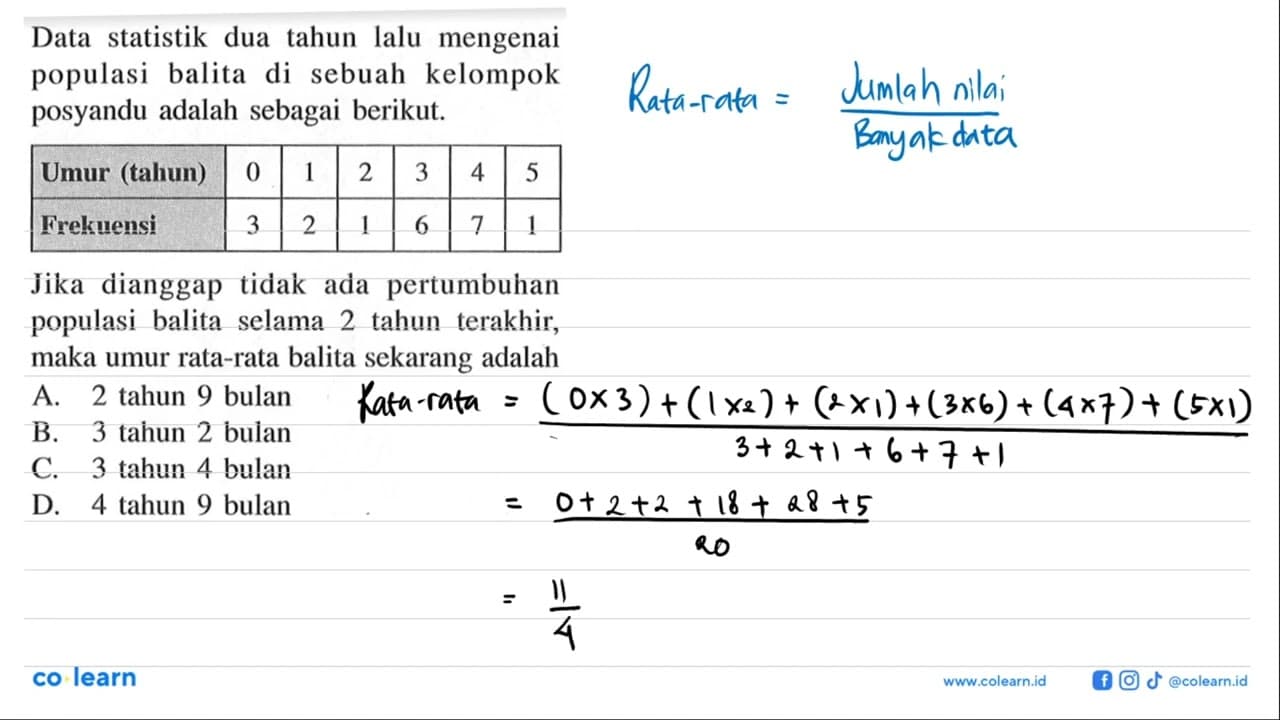 Data statistik dua tahun lalu mengenai
populasi balita di sebuah kelompok
posyandu adalah sebagai berikut.
Rata-rata = Jumlah nilai
Banyak data
Umur (tahun) 0 1 2 3 4 5
Frekuensi 3 2 1 6 7 1
Jika dianggap tidak ada pertumbuhan
populasi balita selama 2 tahun terakhir,
maka umur rata-rata balita sekarang adalah
A. 2 tahun 9 bulan
B. 3 tahun 2 bulan
C. 3 tahun 4 bulan
D. 4 tahun 9 bulan
Rata-rata = (0×3)+(1×2)+(2×1)+(3×6)+(4×7)+(5×1)
3+2+1+6+7+1
= 0+2+2+18+28+5
20
= 11
4
co learn
www.colearn.id
@colearn.id